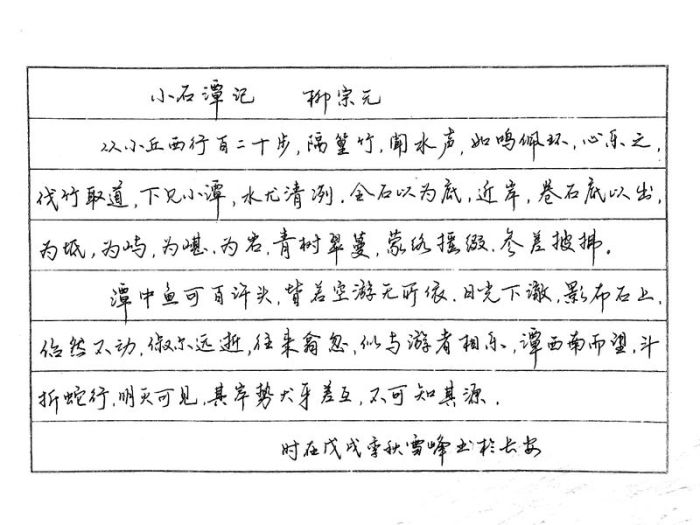 小石潭记 柳宗元
从小丘西行百二十步,隔篁竹,闻水声,如鸣佩环,心乐之,
伐竹取道,下见小潭,水尤清冽.全石以为底,近岸,卷石底以出,
为坻,为屿,为嵁.为岩,青树翠蔓,蒙络摇缀.参差披拂。
潭中鱼可百许头,皆若空游无所依.日光下澈,影布石上,
佁然不动,俶尔远逝,往来翕忽.似与游者相乐,潭西南而望,斗
折蛇行,明灭可见,其岸势犬牙差互,不可知其源.
时在戊戌季秋雪峰书於长安